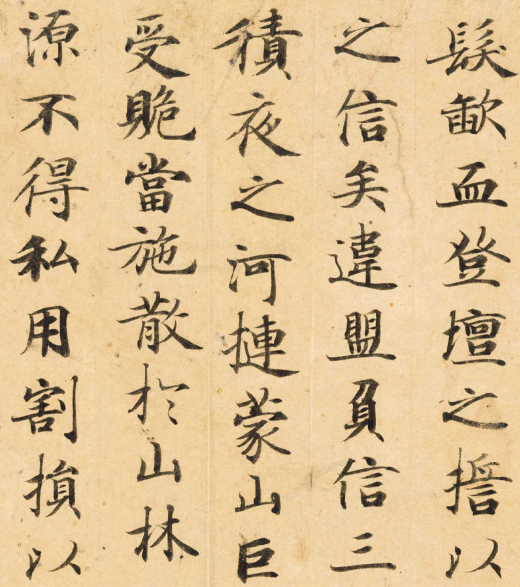 髮歃血登壇之誓以
之信矣違盟負信三
積夜之河摙蒙山巨
受䞈當施散於山林
源不得私用割損以